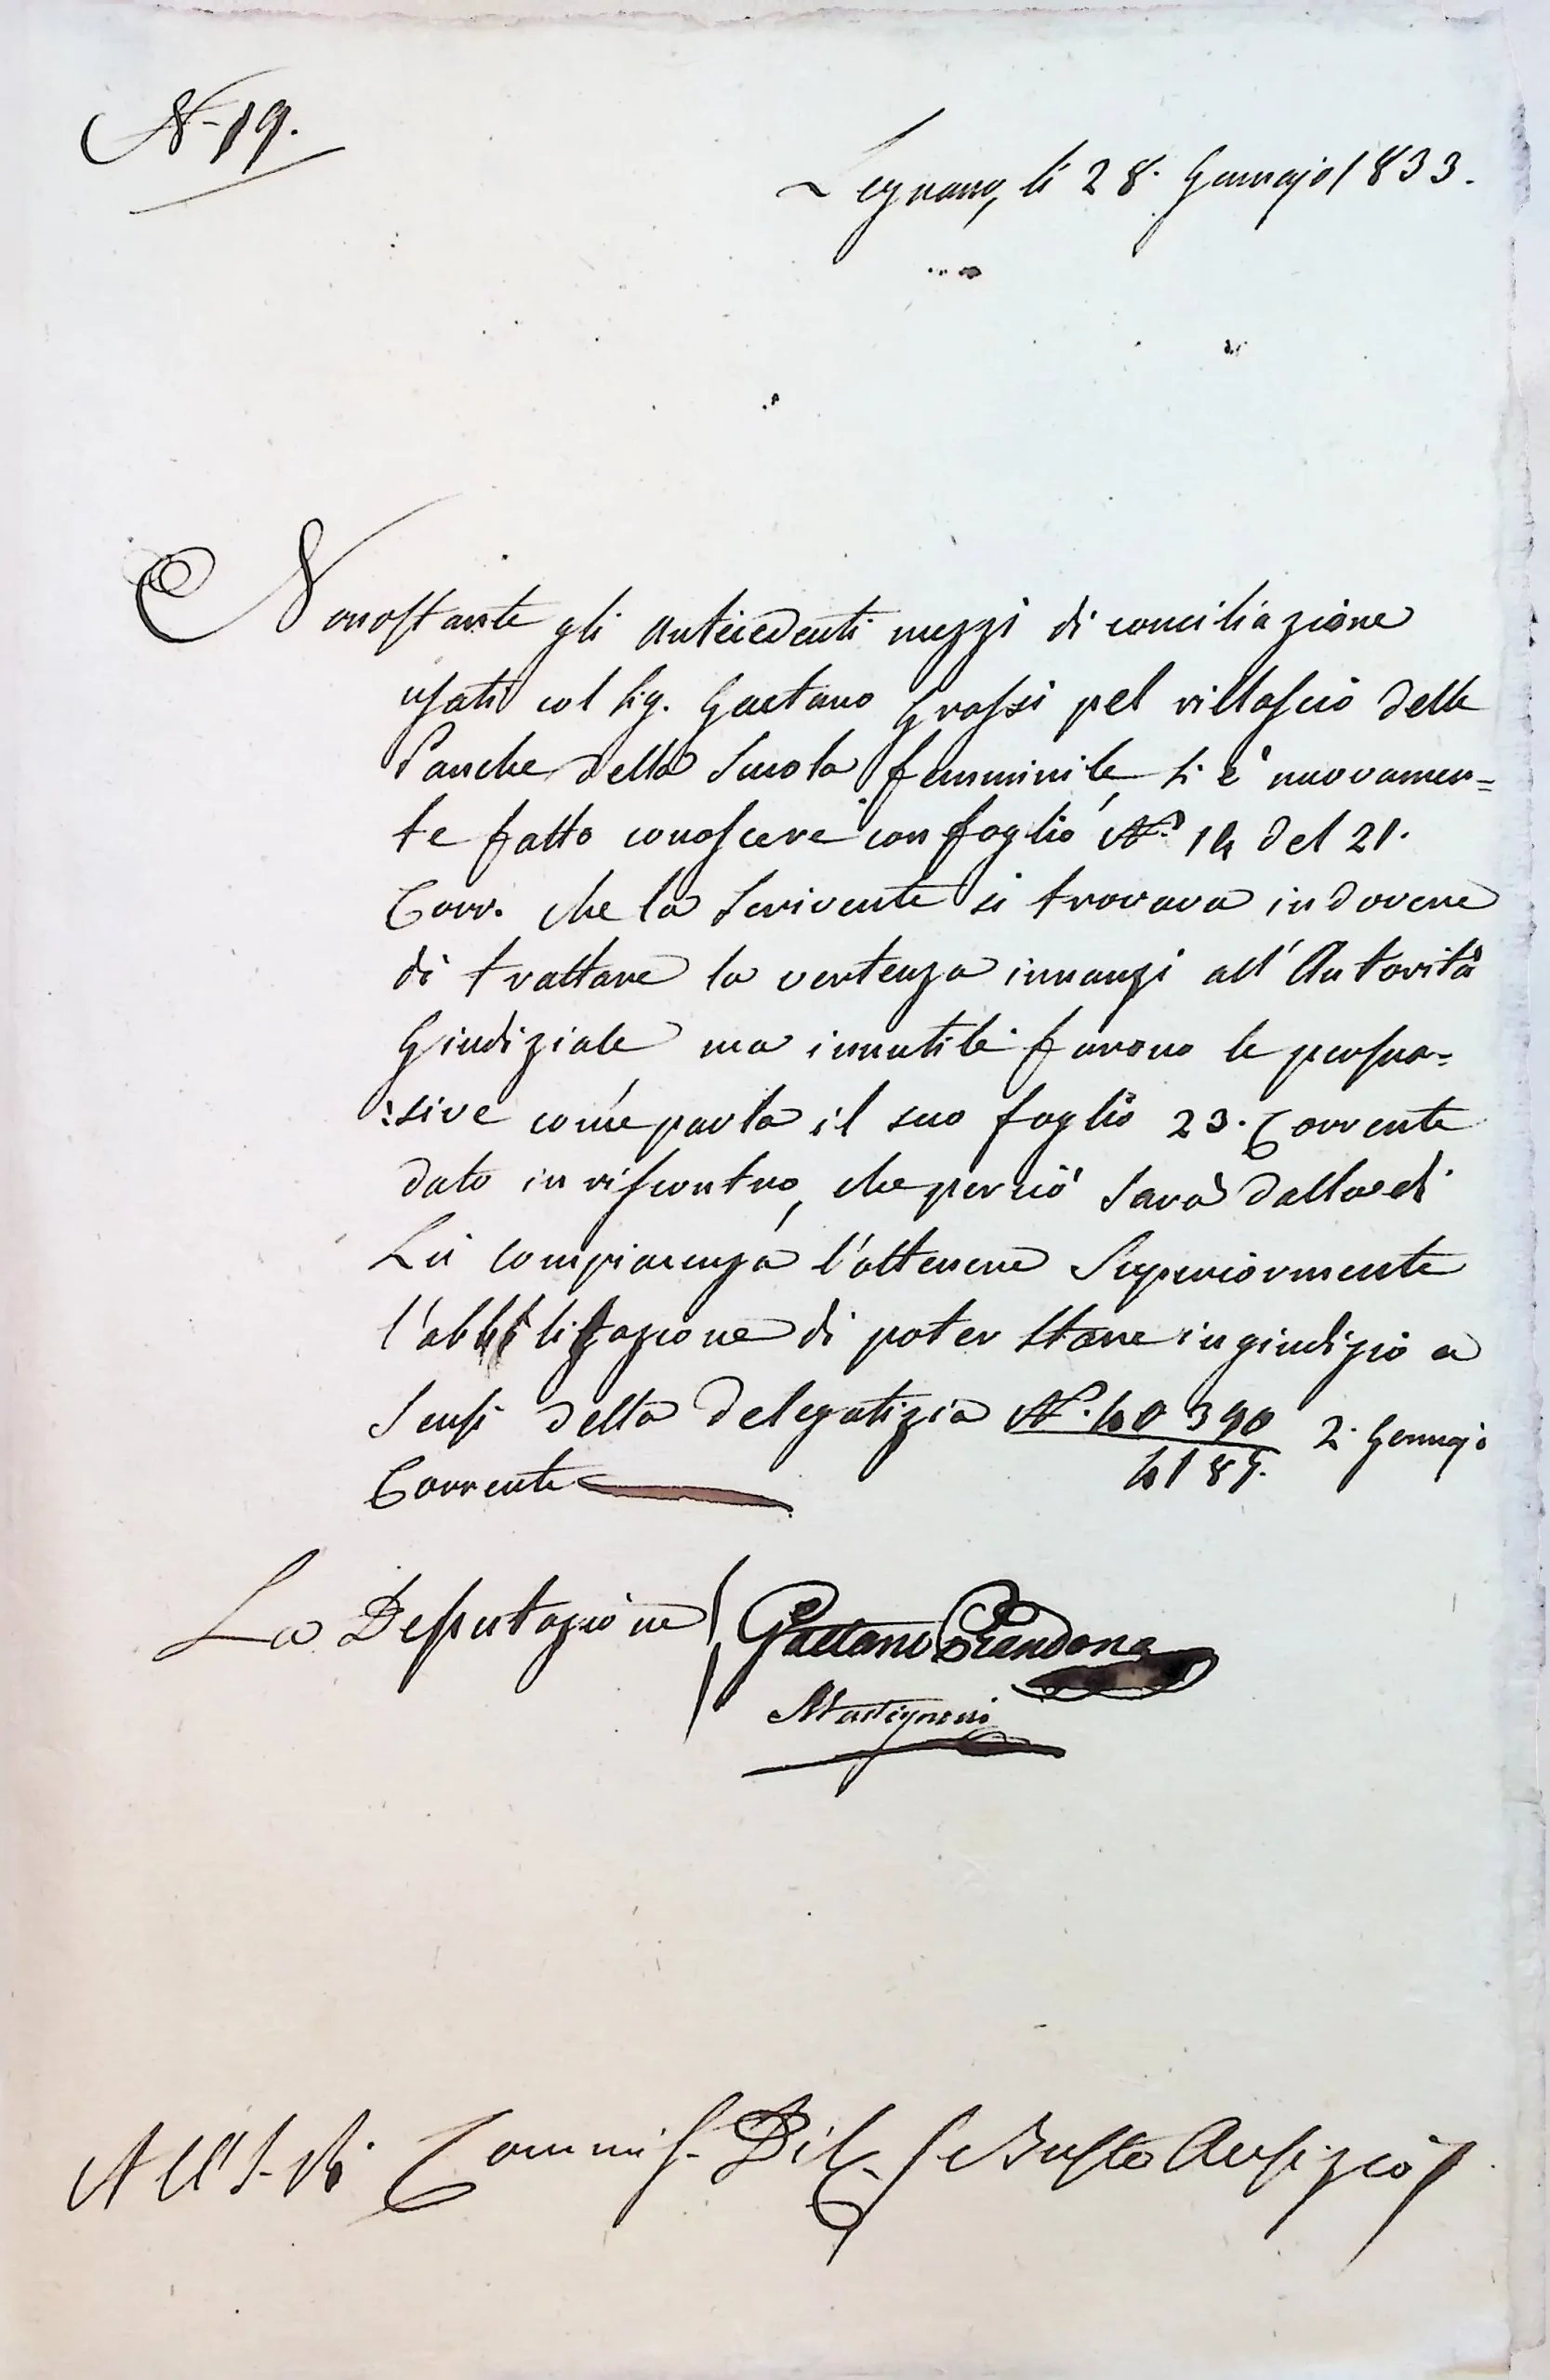 N. 19.
Legnano, li 28. Gennajo 1833.
Nonostante gli antecedenti mezzi di conciliazione
usati col Sig. Gaetano Grassi pel rillascio delle
Panche della Scuola femminile si è nuovamen=
te fatto conoscere con foglio N.° 14 del 21.
Corr. che la Scrivente si trovava in dovere
di trattare la vertenza innanzi all'Autorità
Giudiziale ma innutili furono le persua=
:sive come parla il suo foglio 23. Corrente
dato in riscontro, che perciò sarà dalla di
Lei compiacenza l'ottenere Superiormente
di poter stare in giudizio a
Sensi della delegatizia N. 40390 2. Gennajo
4187.
Corrente
La Deputazione Gaetano Prandona
Martignoni
All'I. R. Commiss. Dis. Busto Arsizio